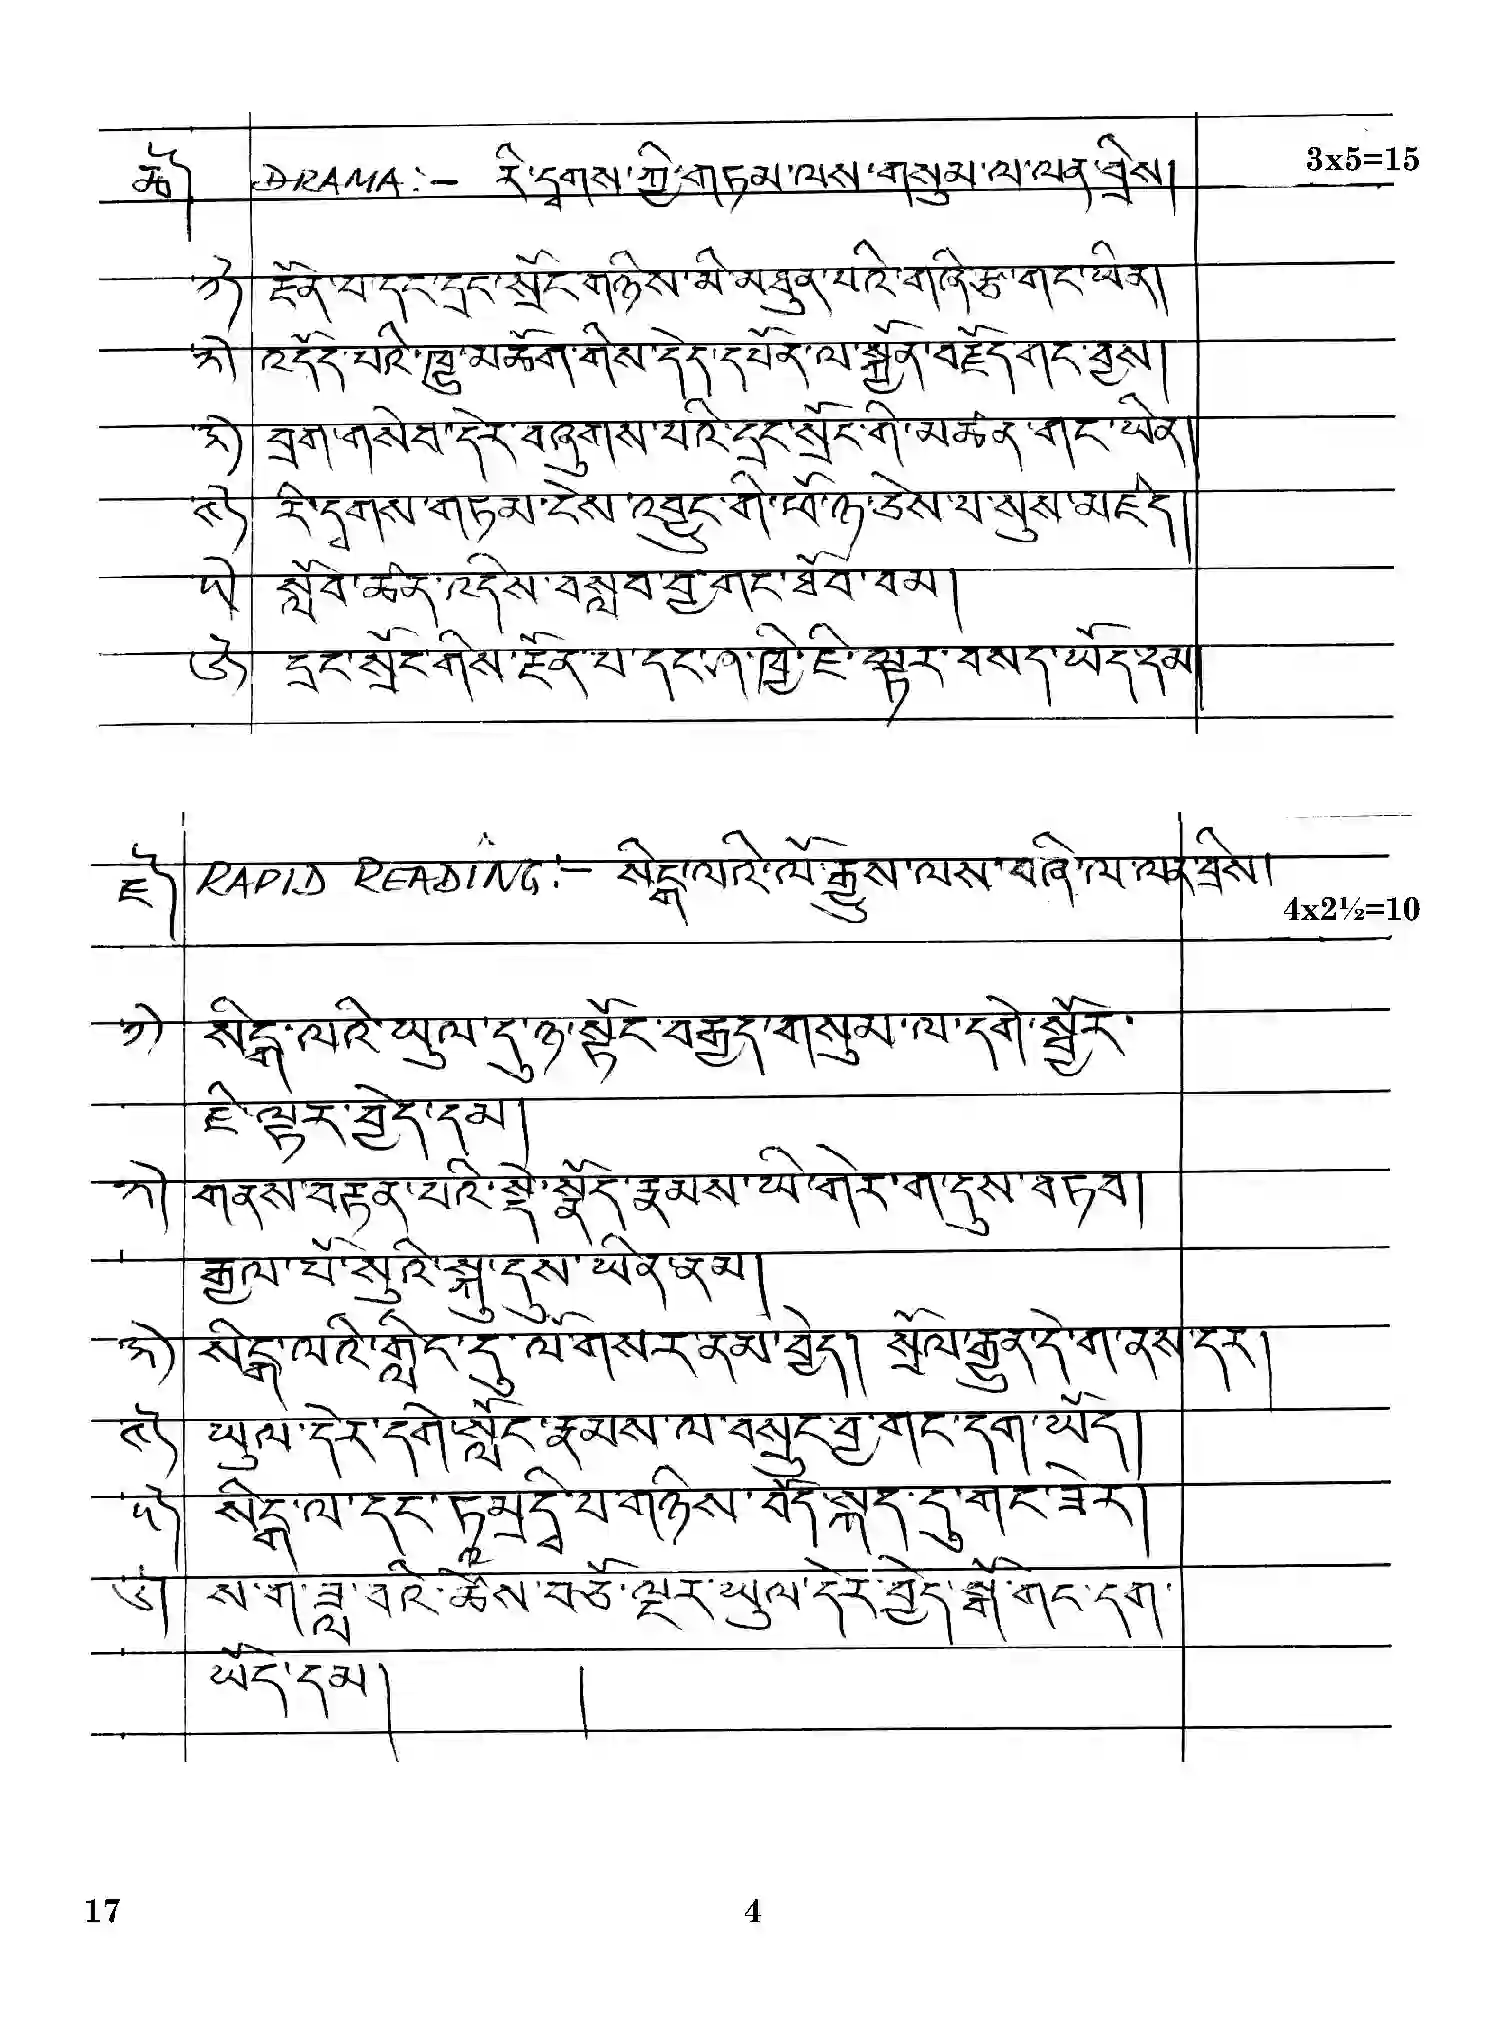 ཆོ། DRAMA:- རི་དྭགས་ཀྱི་གཏམ་ལས་གསུམ་ལ་ལན་བྲིས། 3x5=15
༡། རྔོན་པ་དང་དྲང་སྲོང་གཉིས་མི་མཐུན་པའི་གཞི་རྩ་གང་ཡིན།
༢། འདོད་པའི་ཁྱུ་མཆོག་གིས་དེད་དཔོན་ལ་སྐྱོན་བརྗོད་གང་བྱས།
༣། བྲག་གསེབ་དེར་བཞུགས་པའི་དྲང་སྲོང་གི་མཚན་གང་ཡིན།
༤། རི་དྭགས་གཏམ་ངེས་འབྱུང་གི་ཕོ་ཉ་ཅེས་པ་སུས་མཛད།
༥། སློབ་ཚན་འདིས་བསླབ་བྱ་གང་ཐོབ་བམ།
༦། དྲང་སྲོང་གིས་རྔོན་པ་དང་ཤ་ཁྱི་ཇི་ལྟར་བསད་ཡོད་དམ།
ཇོ། RAPID READING:- སིངྒ་ལའི་ལོ་རྒྱུས་ལས་བཞི་ལ་ལན་བྲིས།
4x2½=10
༡། སིངྒ་ལའི་ཡུལ་དུ་ཉ་སྟོང་བརྒྱད་གསུམ་ལ་དགེ་སྦྱོར་
ཇི་ལྟར་བྱེད་དམ།
༢། གནས་བརྟན་པའི་སྡེ་སྣོད་རྣམས་ཡི་གེར་ག་དུས་བཏབ།
རྒྱལ་པོ་སུའི་སྐུ་དུས་ཡིན་ནམ།
༣། སིངྒ་ལའི་གླིང་དུ་ལོ་གསར་ནམ་བྱེད། སྲོལ་རྒྱུན་དེ་ག་ནས་དར།
༤། ཡུལ་དེར་དགེ་སློང་རྣམས་ལ་བསྲུང་བྱ་གང་དག་ཡོད།
༥། སིངྒ་ལ་དང་ཏཱམྲ་དྭཱི་པ་གཉིས་བོད་སྐད་དུ་གང་ཟེར།
༦། ས་ག་ཟླ་བའི་ཚེས་བཅོ་ལྔར་ཡུལ་དེར་བྱེད་སྒོ་གང་དག་
ཡོད་དམ།
17 4